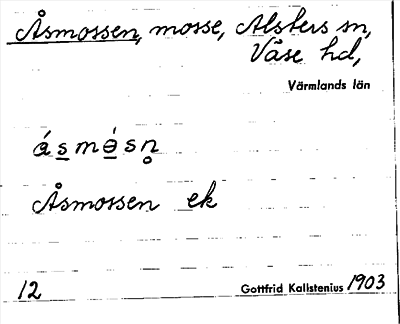 Åsmossen, mosse, Alsters sn,
Väse hd,
Värmlands län
á s m ə́ s n̥
Åsmossen ek
12 Gottfrid Kallstenius 1903